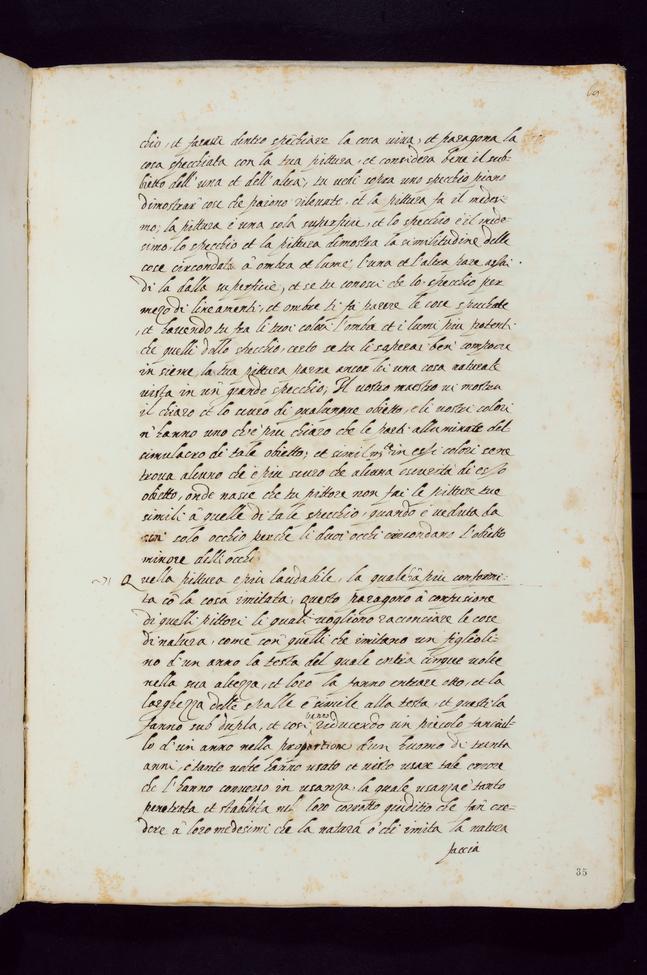 69
chio, et farasti dentro spechiare la cosa viva, et paragona la
cosa specchiata con la tua pittura, et considera bene il sub-
bietto dell' una et dell' altra, tu vedi sopra uno specchio piano
dimostrar' cose che paiono rilevate, et la pittura fa il medesi-
mo; la pittura è una sola superficie, et lo specchio è il mede-
simo, lo specchio et la pittura dimostra la similitudine delle
cose circondate â ombra et lume, l'una et l'altra pare assai
di la dalla superficie, et se tu conosci che lo specchio per
mezo di lineamenti, et ombre ti fa parere le cose specchiate
, et havendo tu fra li tuoi colori l'ombre et i lumi piu potenti
che quelli dello specchio, certo se tu li saperai ben' comporre
in sieme, la tua pittura parra ancor lei una cosa naturale
vista in un' grande specchio; Il vostro maestro vi mostra
il chiaro et lo scuro di qualonque obietto, e li vostri colori
n' hanno uno ch'e piu chiaro che le parti alluminate del
simulacro di tale obietto; et similmte in essi colori se ne
trova alcuno che è piu scuro che alcuna oscurita di esso
obietto, onde nasce che tu pittore non fai le pitture tue
simili â quelle di tale specchio, quando è veduta da
un' solo occhio perche li duoi occhi circondano l'obietto
minore dell' occhi
Quella pittura e piu laudabile, la quale â piu conformi-
ta cô la cosa imitata; questo paragono â confusione
di quelli pittori li quali vogliono raconciare le cose
di natura, come con' quelli che imitano un figlioli-
no d'un anno la testa del quale entra cinque volte
nella sua altezza, et loro la fanno entrare otto, et la
larghezza delle spalle è simile alla testa, et questi la
fanno sub dupla, et cosi vanno reducendo un piccolo fanciul-
lo d'un anno nella proportione d'un huomo di trenta
anni, e tante volte hanno usato et visto usare tale errore
che l'hanno converso in usanza, la quale usanza è tanto
penetrata et stabilita nel loro corrotto giuditio che fan' cre-
dere â loro medesimi che la natura o chi imita la natura
faccia
35